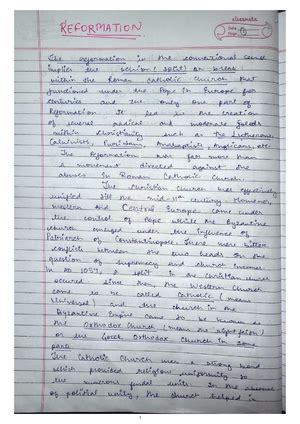 classmate
Date
Page
REFORMATION
The reformation in the conventional sense
implies the schism (split) or break
within the Roman Catholic Church that
functioned under the Pope in Europe for
centuries and the only one part of
Reformation It led to the creation
of several radical and moderate
within Christianity such as The Lutherans,
Calvinists, Puritans, Anabaptists, Anglicans, etc.
The Reformation was far more than
a movement directed against the
abuses in Roman Catholic Church.
The Christian church was effectively
unified till the mid-11th century. However,
Western and Central Europe came under
the control of Pope while the Byzantine
church emerged under the influence of
Patriarch of Constantinople. There were bitter
conflicts between the two heads on the
question of supremacy and church
In AD 1054, a split in the Christian
occurred since then the Western Church
came to be called Catholic (means
Universal) and the church in the
Byzantine Empire came to be known as
the Orthodox Church (means the right
or the Greek Orthodox Church in some
parts.
The Catholic Church was a strong bond
which provided religious uniformity to
the numerous feudal units. In the absence
of political unity, the church helped in
1